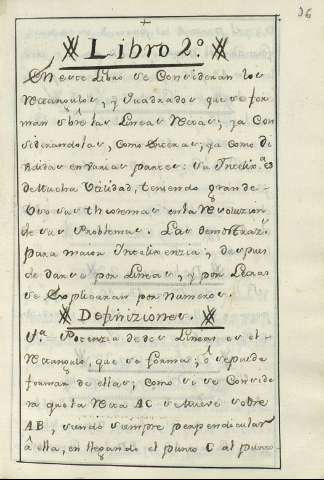 36
Libro 2º
En este Libro se Consideran los
Rectangulos, y Quadrados que se for
man sobre las Lineas Rectas; ya Con
siderandolas, como Enteras; ya como di
vididas en varias partes: su Intelixª es
de Mucha Utilidad, teniendo grande
Uso sus theoremas en la Resoluzion
de sus Problemas. Las demostraz.s
para maior Intelixenzia, despues
de darse por Lineas, y por Letras
se Explicaran por Numeros.
Definiziones.
1ª Potenzia de dos Lineas es el
Rectangulo, que se forma, ó se puede
formar de ellas; como si se Conside
ra que la Recta AC se mueve sobre
AB, siendo siempre perpendicular
â ella, en llegando el punto C al punto